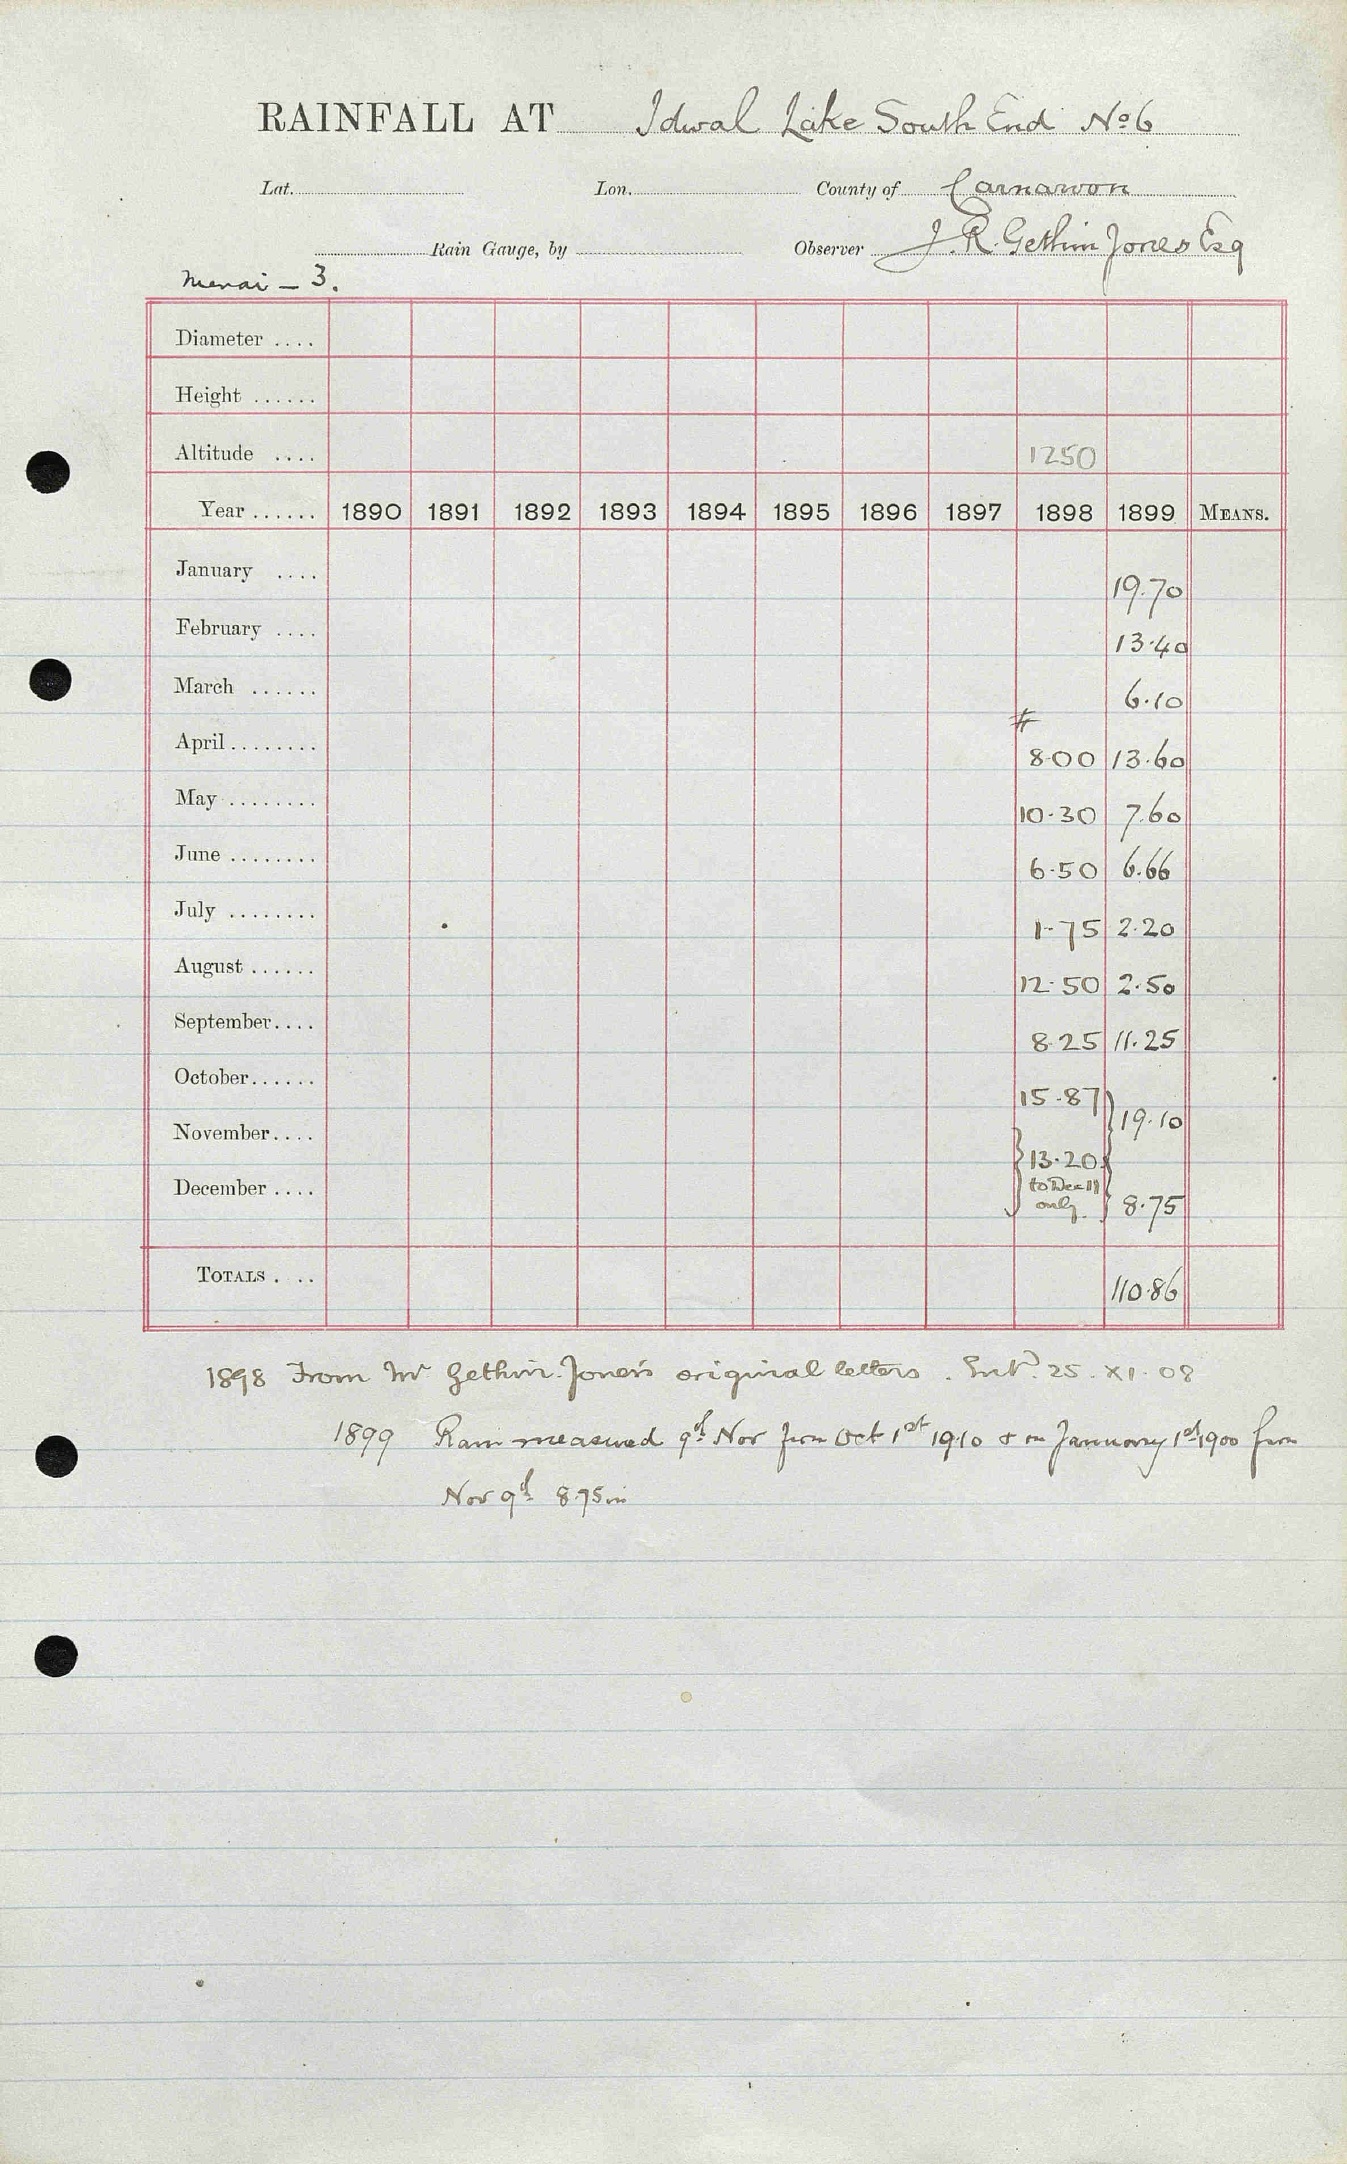 RAINFALL AT Idwal Lake South End No 6
Lat. Lon. County of Carnarvon
Rain Gauge, by Observer J. R. Gethin Jones Esq
Menai - 3.
Diameter ....
Height ......
Altitude .... 1250
Year ...... 1890 1891 1892 1893 1894 1895 1896 1897 1898 1899 MEANS.
January .... 19.70
February .... 13.40
March ...... 6.10
#
April ........ 8.00 13.60
May ........ 10.30 7.60
June ........ 6.50 6.66
July ........ 1.75 2.20
August ...... 12.50 2.50
September.... 8.25 11.25
October...... 15.87 } 19.10
November.... } 13.20
December .... to Dec 11 only 8.75
TOTALS . .. 110.86
1898 From Mr Gethin Jones's original letters . Entd 25 . XI . 08
1899 Rain measured 9th Nov from Oct 1st 19.10 & on January 1st 1900 from
Nov 9th 8.75 in